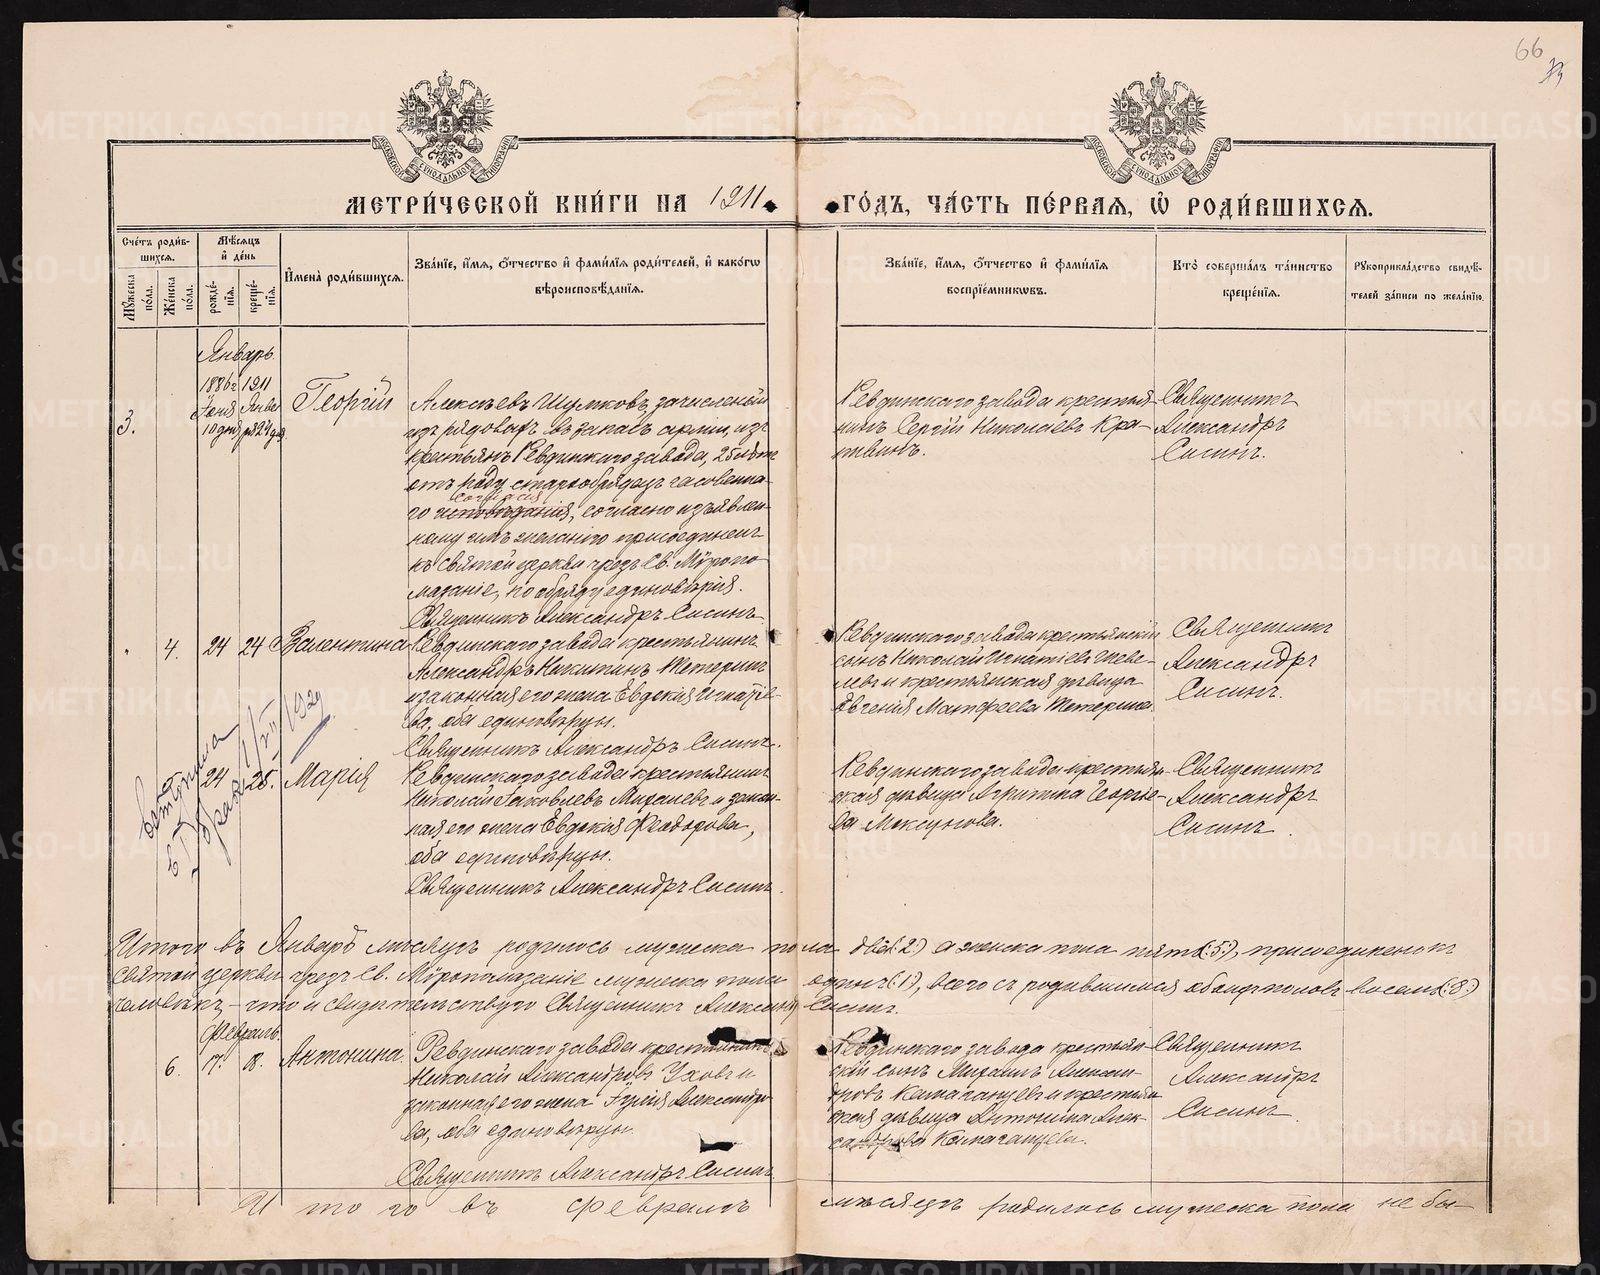 66
МЕТРИ́ЧЕСКОЙ КНИ́ГИ НА 1911
ГО́ДЪ, ЧА́СТЬ ПЕ́РВАѦ, Ѡ҆ РОДИ́ВШИХСѦ.
Сче́тъ роди́в-
шихсѧ.
Мѣ́сѧцъ
и҆ де́нь
Мꙋ́жеска по́ла.
Же́нска по́ла.
рожде́-нїѧ.
креще́-нїѧ.
И҆мена̀ роди́вшихсѧ.
Зва́нїе, и҆́мѧ, ѻ҆́тчество и҆ фами́лїѧ роди́телей, и҆ како́гѡ
вѣроисповѣ́данїѧ.
Зва́нїе, и҆́мѧ, ѻ҆́тчество и҆ фами́лїѧ
воспрїе́мникѡвъ.
Кто̀ соверша́лъ та́инство
креще́нїѧ.
Рꙋкоприкла́дство свидѣ́-
телей за́писи по жела́нїю.
Январь.
3.
1886 г. Іюня 10 дня
1911 Янва ря 24 дня
Георгій
Алексѣевъ Шумковъ, зачисленый
изъ рядовыхъ въ запасъ арміи, изъ
крестьянъ Ревдинскаго завода, 25 лѣтъ
отъ роду, старообрядецъ часовенна-
го исповѣданія, согласно изъявлен-
согласія
ному имъ желанію присоединенъ
къ Святой церкви чрезъ Св. Мѵропо-
мазаніе, по обряду единовѣрія.
Священникъ Александръ Сисинъ.
Ревдинскаго завода крестья-
нинъ Сергій Николаевъ Кра-
Священникъ
Александръ
Сисинъ.
4.
24
24
Валентина
Ревдинскаго завода крестьянинъ
Александръ Никитинъ Тетеринъ
и законная его жена Евдокія Игнатіе-
ва, оба единовѣрцы.
Священникъ Александръ Сисинъ.
Ревдинскаго завода крестьянскій
сынъ Николай Игнатіевъ
и крестьянская дѣвица
Евгенія Матфеева Тетерина.
Священникъ
Александръ
Сисинъ.
24
25.
Марія
Ревдинскаго завода крестьянинъ
Николай Іаковлевъ Михалевъ и закон-
ная его жена Евдокія Ѳеодорова,
оба единовѣрцы.
Священникъ Александръ Сисинъ.
Ревдинскаго завода крестьян-
ская дѣвица Агрипина Георгіе-
ва Максунова.
Священникъ
Александръ
Сисинъ.
1929
Итого въ Январѣ мѣсяцѣ родилось мужеска пола два (:2:) а женска пола пять (:5:), присоединено къ
Святой церкви чрезъ Св. Мѵропомазаніе мужеска пола одинъ (:1:), всего съ родившимися обоихъ половъ восемь (:8:)
человѣкъ, – что и свидѣтельствую Священникъ Александръ Сисинъ.
Февраль.
6.
17.
18.
Антонина.
Ревдинскаго завода крестьянинъ
Николай Александровъ Уховъ и
законная его жена Іулія Александро-
ва, оба единовѣрцы.
Священникъ Александръ Сисинъ.
Ревдинскаго завода крестьян-
скій сынъ Михаилъ Алексан-
дровъ Камаганцевъ и крестьян-
ская дѣвица Антонина Алек-
сандрова Камаганцева.
Священникъ
Александръ
Сисинъ.
Итого въ Февралѣ мѣсяцѣ родилось мужеска пола не бы-